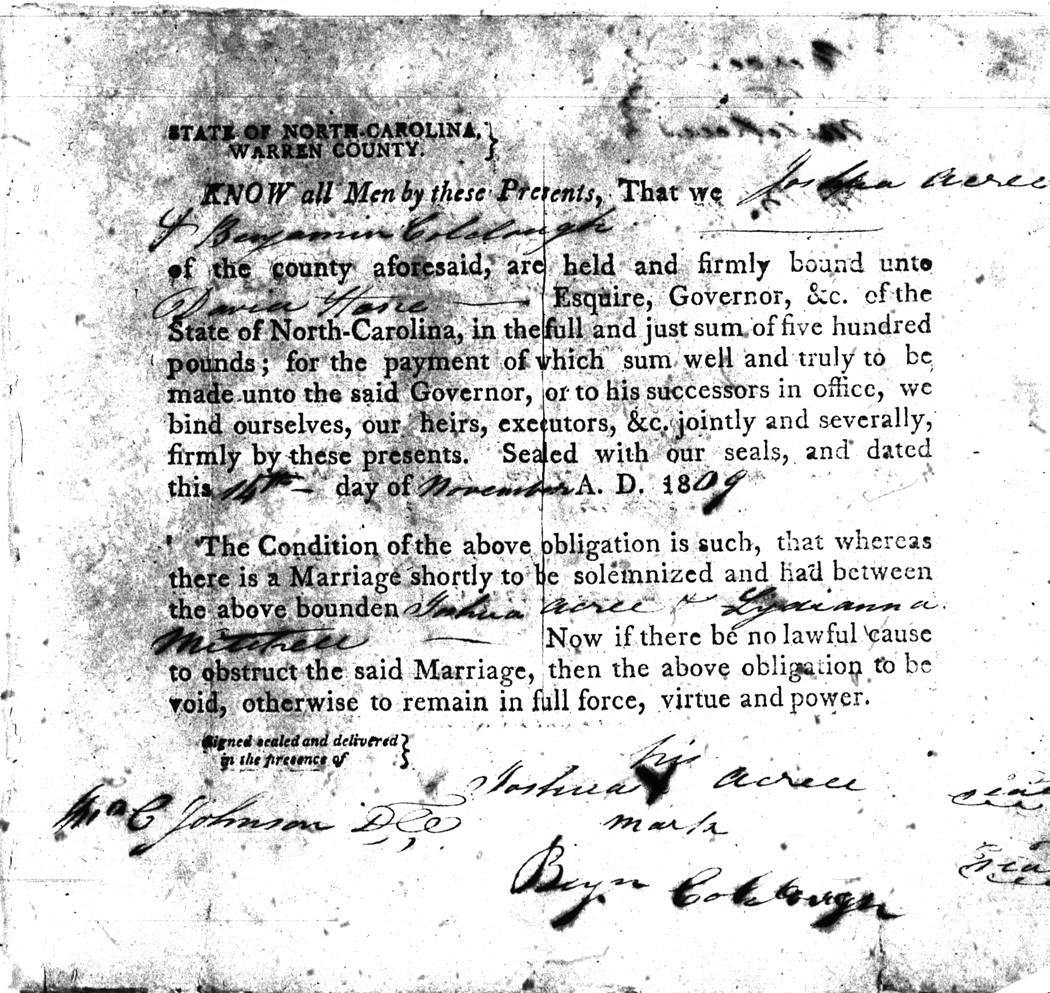 STATE OF NORTH-CAROLINA,
WARREN COUNTY.
KNOW all Men by these Presents, That we Joshua Acree
& Benjamin Coleclough
of the county aforesaid, are held and firmly bound unto
David Stone Esquire, Governor, &c. of the
State of North-Carolina, in the full and just sum of five hundred
pounds; for the payment of which sum well and truly to be
made unto the said Governor, or to his successors in office, we
bind ourselves, our heirs, executors, &c. jointly and severally,
firmly by these presents. Sealed with our seals, and dated
this 14th day of November A. D. 1809
The Condition of the above obligation is such, that whereas
there is a Marriage shortly to be solemnized and had between
the above bounden Joshua Acree & Lydianna
Mitchell Now if there be no lawful cause
to obstruct the said Marriage, then the above obligation to be
void, otherwise to remain in full force, virtue and power.
Signed sealed and delivered
in the presence of
his
Joshua X Acree seal
mark
C Johnson
Benjn seal